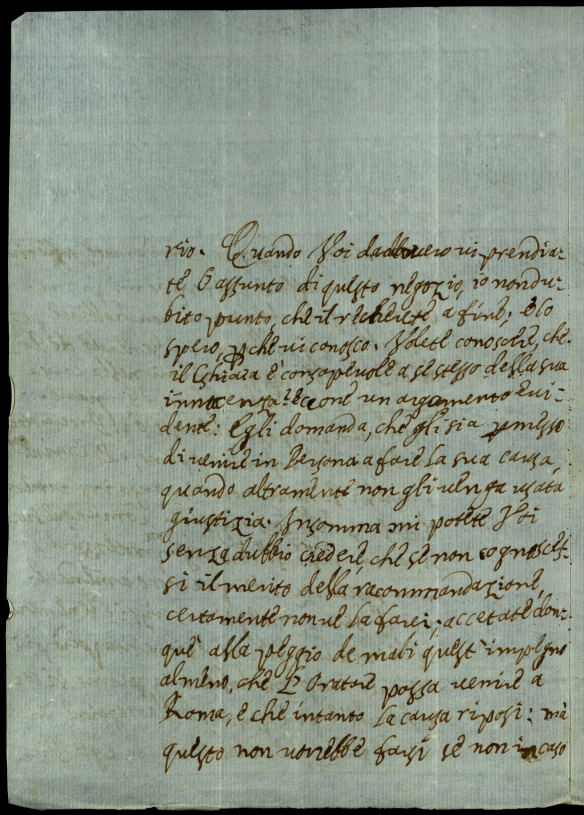 rio. Quando Voi daddovero vi prendia-
te l'assunto di questo negozio, io non du-
bito punto, che il recherete a fine; e lo
spero, pche vi conosco. Volete conoscere, che
il Chiara è consapevole a se stesso della sua
innocenza? Eccone un argomento evi-
dente: Egli domanda, che gli sia pmesso
di venire in Persona a fare la sua causa,
quando altramente non gli venga usata
giustizia. Insomma mi potete Voi
senza dubbio credere, che se non cognosces-
si il merito della raccommandazione,
certamente non ve la farei; accetate don-
que alla peggio de mali quest'impegno
almeno, che l'Oratore possa venire a
Roma, e che intanto la causa riposi: mà
questo non vorrebbe farsi se non in caso